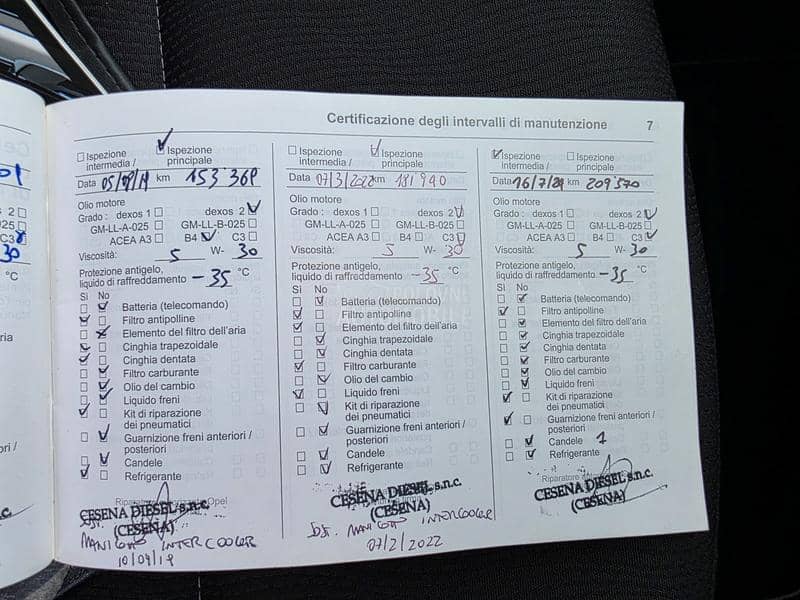 Certificazione degli intervalli di manutenzione 7
Ispezione intermedia / Ispezione principale
Data 05/09/19 km 153 369
Olio motore
Grado : dexos 1 dexos 2
GM-LL-A-025 GM-LL-B-025
ACEA A3 B4 C3
Viscosità: 5 W- 30
Protezione antigelo,
liquido di raffreddamento -35 °C
Sì No
Batteria (telecomando)
Filtro antipolline
Elemento del filtro dell'aria
Cinghia trapezoidale
Cinghia dentata
Filtro carburante
Olio del cambio
Liquido freni
Kit di riparazione
dei pneumatici
Guarnizione freni anteriori /
posteriori
Candele
Refrigerante
Riparatore Opel
CESENA DIESEL s.n.c.
(CESENA)
MANICOTTO INTERCOOLER
10/09/19
Ispezione intermedia / Ispezione principale
Data 07/3/2022 km 181 940
Olio motore
Grado : dexos 1 dexos 2
GM-LL-A-025 GM-LL-B-025
ACEA A3 B4 C3
Viscosità: 5 W- 30
Protezione antigelo,
liquido di raffreddamento -35 °C
Sì No
Batteria (telecomando)
Filtro antipolline
Elemento del filtro dell'aria
Cinghia trapezoidale
Cinghia dentata
Filtro carburante
Olio del cambio
Liquido freni
Kit di riparazione
dei pneumatici
Guarnizione freni anteriori /
posteriori
Candele
Refrigerante
CESENA DIESEL s.n.c.
(CESENA)
SOST. MANICOTTO INTERCOOLER
07/2/2022
Ispezione intermedia / Ispezione principale
Data 16/7/24 km 209'570
Olio motore
Grado : dexos 1 dexos 2
GM-LL-A-025 GM-LL-B-025
ACEA A3 B4 C3
Viscosità: 5 W- 30
Protezione antigelo,
liquido di raffreddamento -35 °C
Sì No
Batteria (telecomando)
Filtro antipolline
Elemento del filtro dell'aria
Cinghia trapezoidale
Cinghia dentata
Filtro carburante
Olio del cambio
Liquido freni
Kit di riparazione
dei pneumatici
Guarnizione freni anteriori /
posteriori
Candele 1
Refrigerante
Riparatore
CESENA DIESEL s.n.c.
(CESENA)